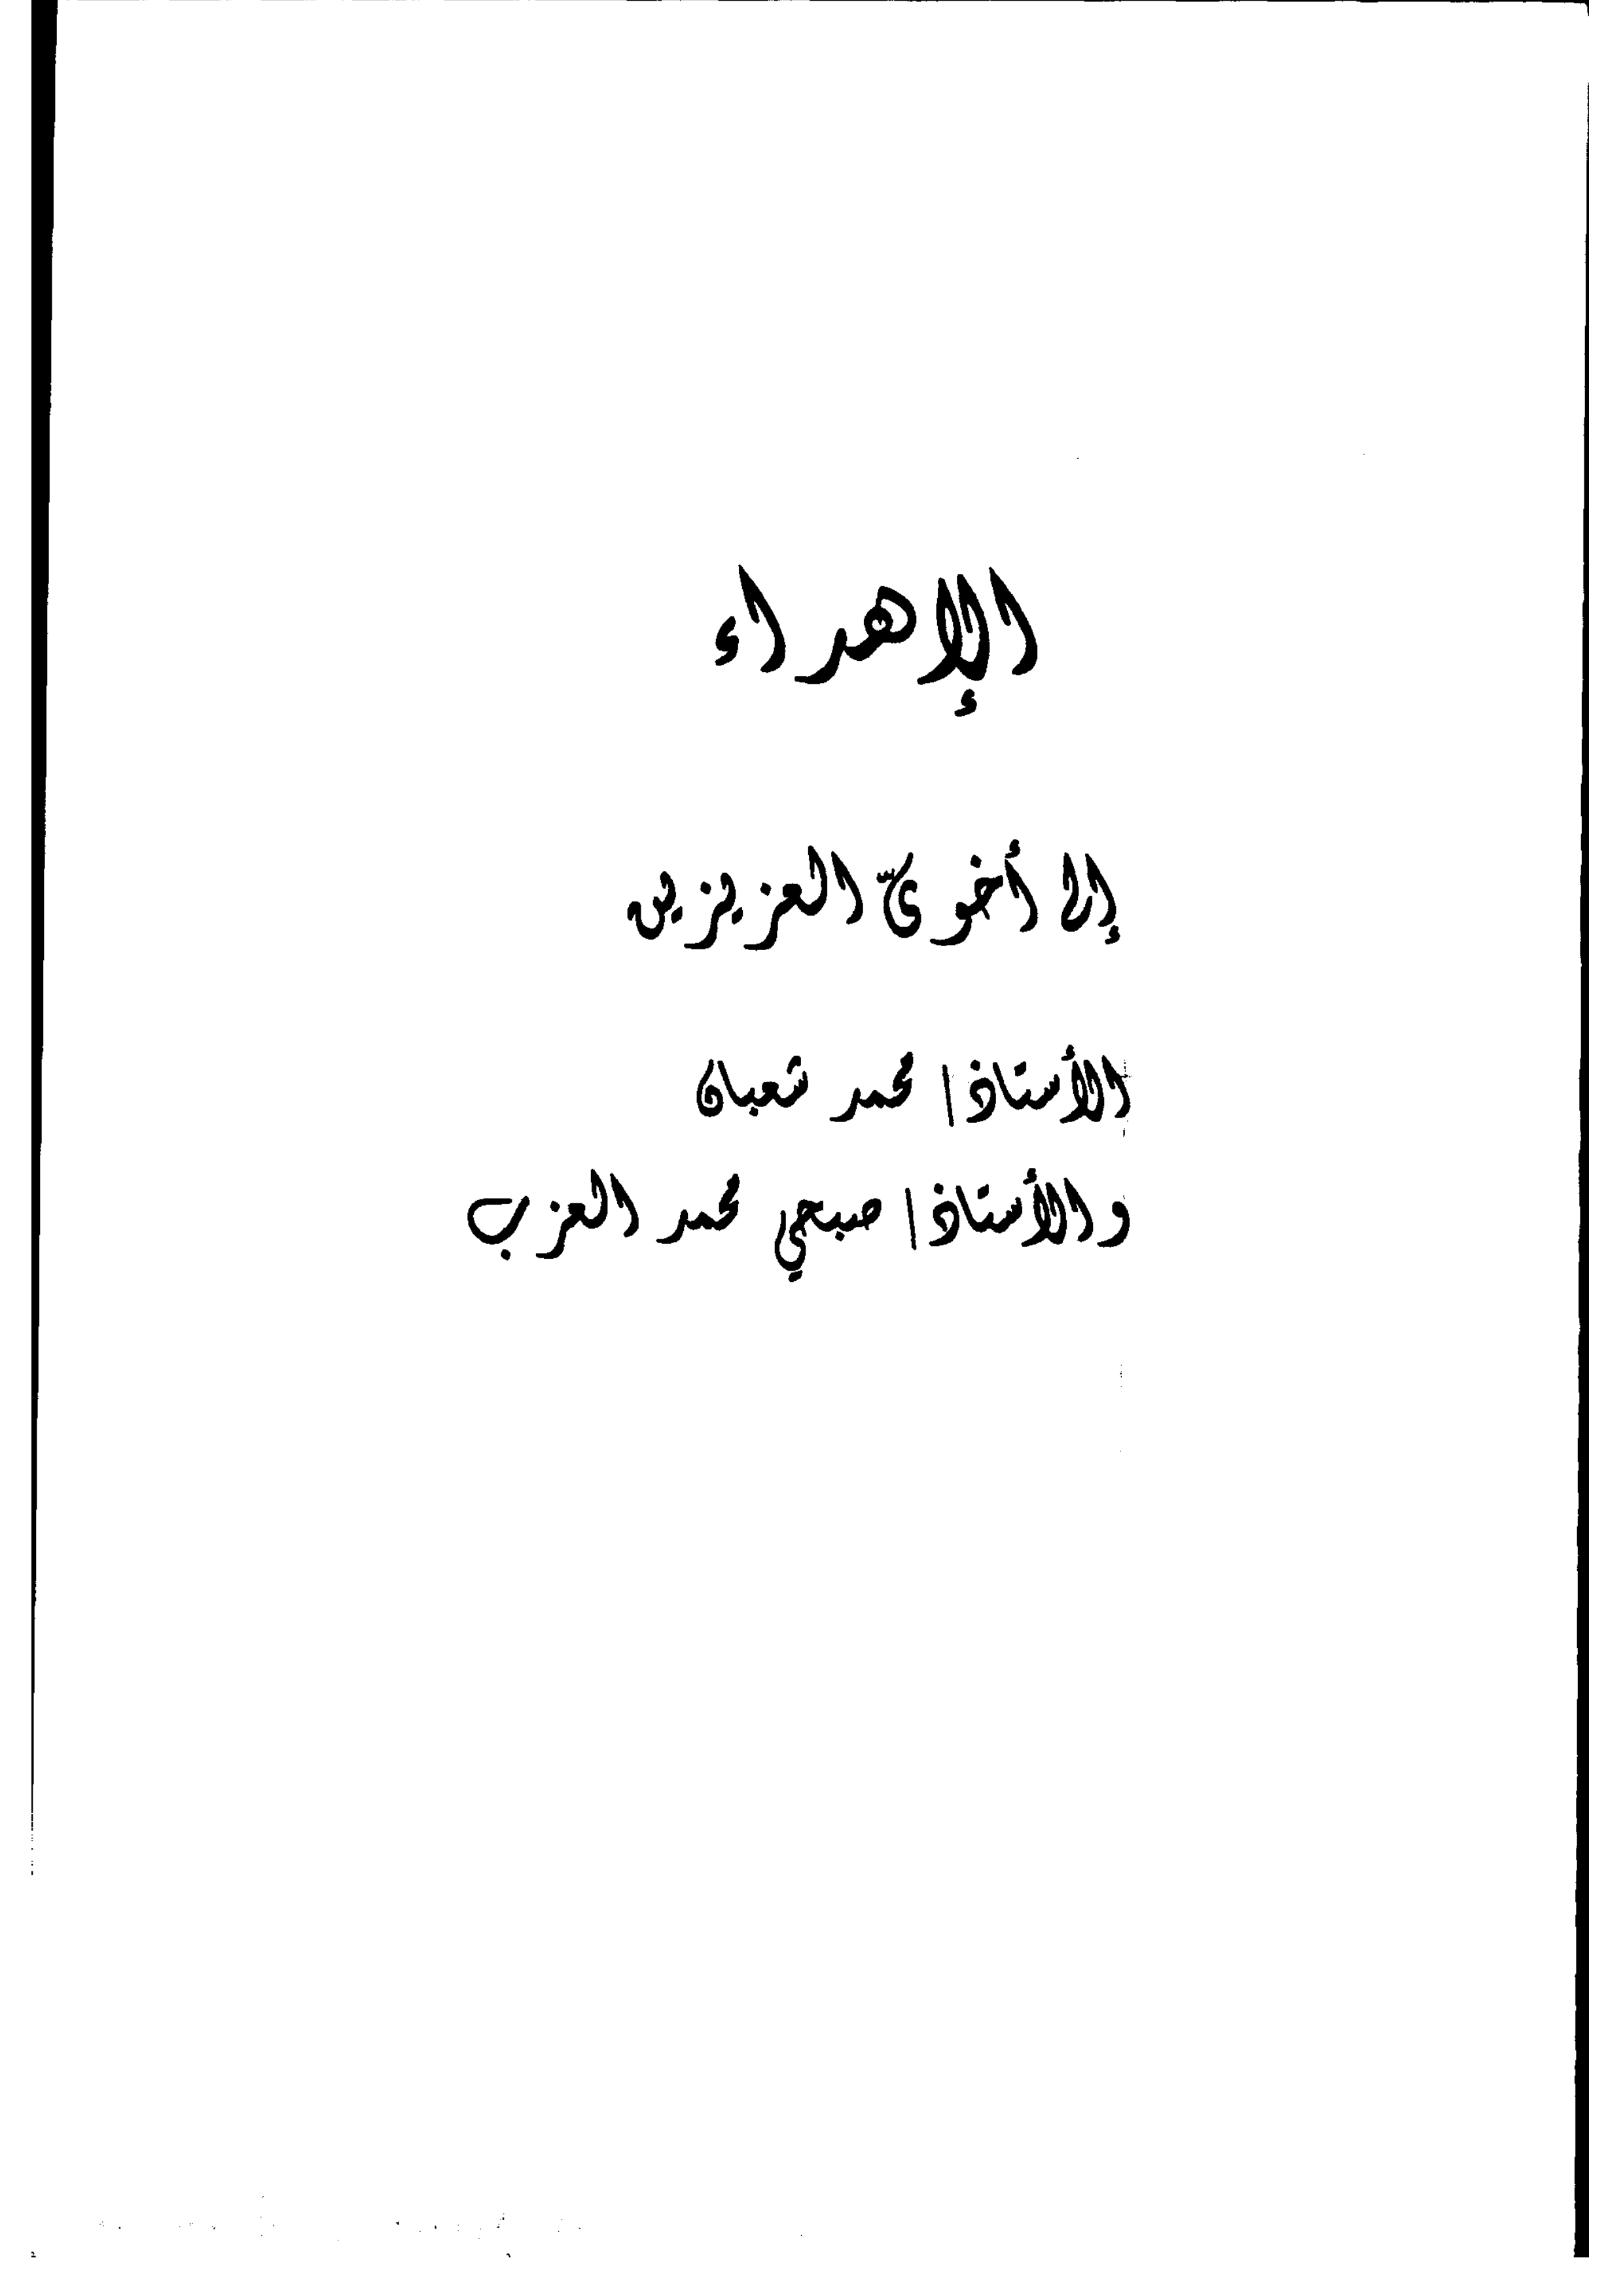 الإهداء
إلى أخويّ العزيزين
الأستاذ / محمد شعبان
والأستاذ / صبحي محمد العزب